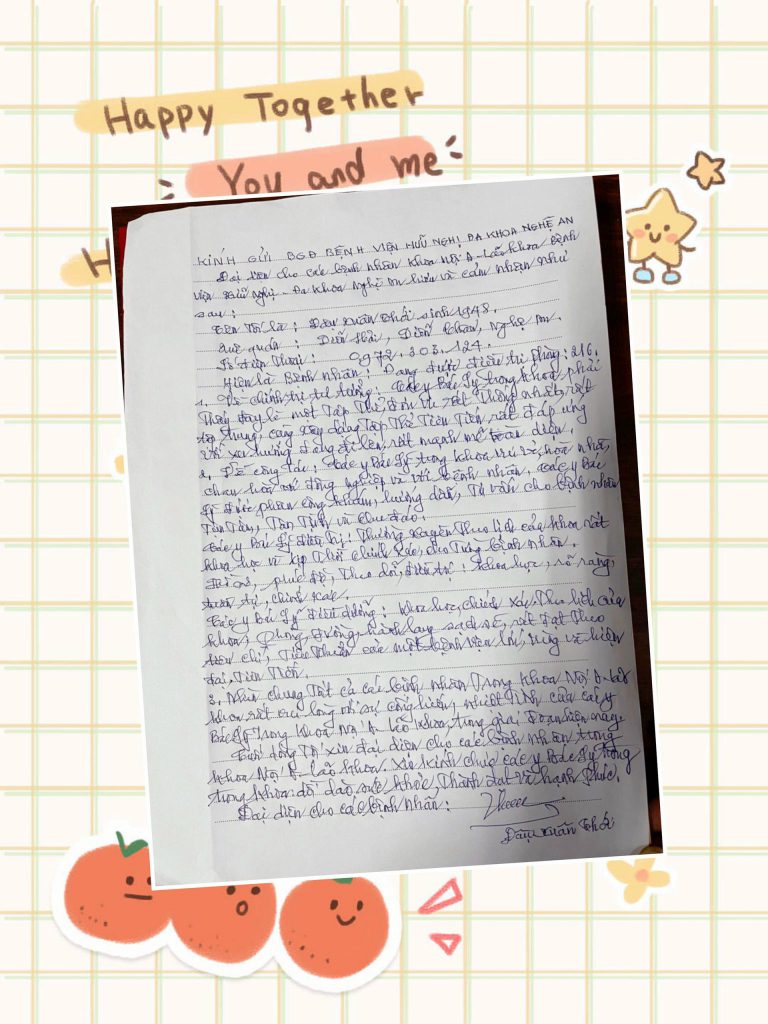 Happy Together
You and me
H
KÍNH GỬI BGĐ BỆNH VIỆN HỮU NGHỊ ĐA KHOA NGHỆ AN
Đại diện cho các bệnh nhân khoa Nội A - Lão khoa bệnh
viện Hữu Nghị - Đa khoa Nghệ An và cảm nhận như
sau:
Tên Tôi là: Đậu Xuân Thái sinh 1948.
Quê quán: Diễn Hải, Diễn Châu, Nghệ An.
Số điện thoại: 0972.203.124.
Hiện là Bệnh nhân: Đang được điều trị Phòng: 216.
1. Về chính trị tư tưởng: Các y Bác Sỹ trong khoa phải
Thấy đây là một Tập Thể đơn vị rất Thống nhất, rất
tập trung, càng xây dựng Tập Thể Tiên Tiến, rất đáp ứng
với xu hướng đang đi lên, rất mạnh mẽ toàn diện.
2. Về công tác: Các y Bác Sỹ trong khoa vui vẻ, hòa nhã,
chan hòa với đồng nghiệp và với bệnh nhân. Các y Bác
Sỹ được phân công khám, hướng dẫn, Tư vấn cho bệnh nhân
Tận Tâm, Tận Tình và chu đáo.
Các y Bác Sỹ điều trị: Thường xuyên Theo lịch của khoa rất
khoa học và kịp Thời chính xác, cho Từng bệnh nhân.
phác đồ, Theo dõi, điều trị: khoa học, rõ ràng,
chính xác.
Các y Bác Sỹ điều dưỡng: khoa học, chính xác Theo lịch của
khoa, Phòng, giường, hành lang sạch sẽ, rất đạt Theo
tiêu chí, Tiêu chuẩn các một bệnh viện lớn, và hiện
đại, Tiên Tiến.
3. Nhìn chung Tất cả các bệnh nhân Trong khoa Nội A - Lão
khoa rất vui lòng với sự cống hiến, nhiệt Tình của các y
Bác Sỹ Trong khoa Nội A Lão khoa trong giai đoạn hiện nay.
Cuối cùng Tôi xin đại diện cho các bệnh nhân trong
khoa Nội A - Lão khoa xin kính chúc các y Bác Sỹ trong
trong khoa dồi dào sức khỏe, Thành đạt và hạnh phúc.
Đại diện cho các bệnh nhân:
Đậu Xuân Thái